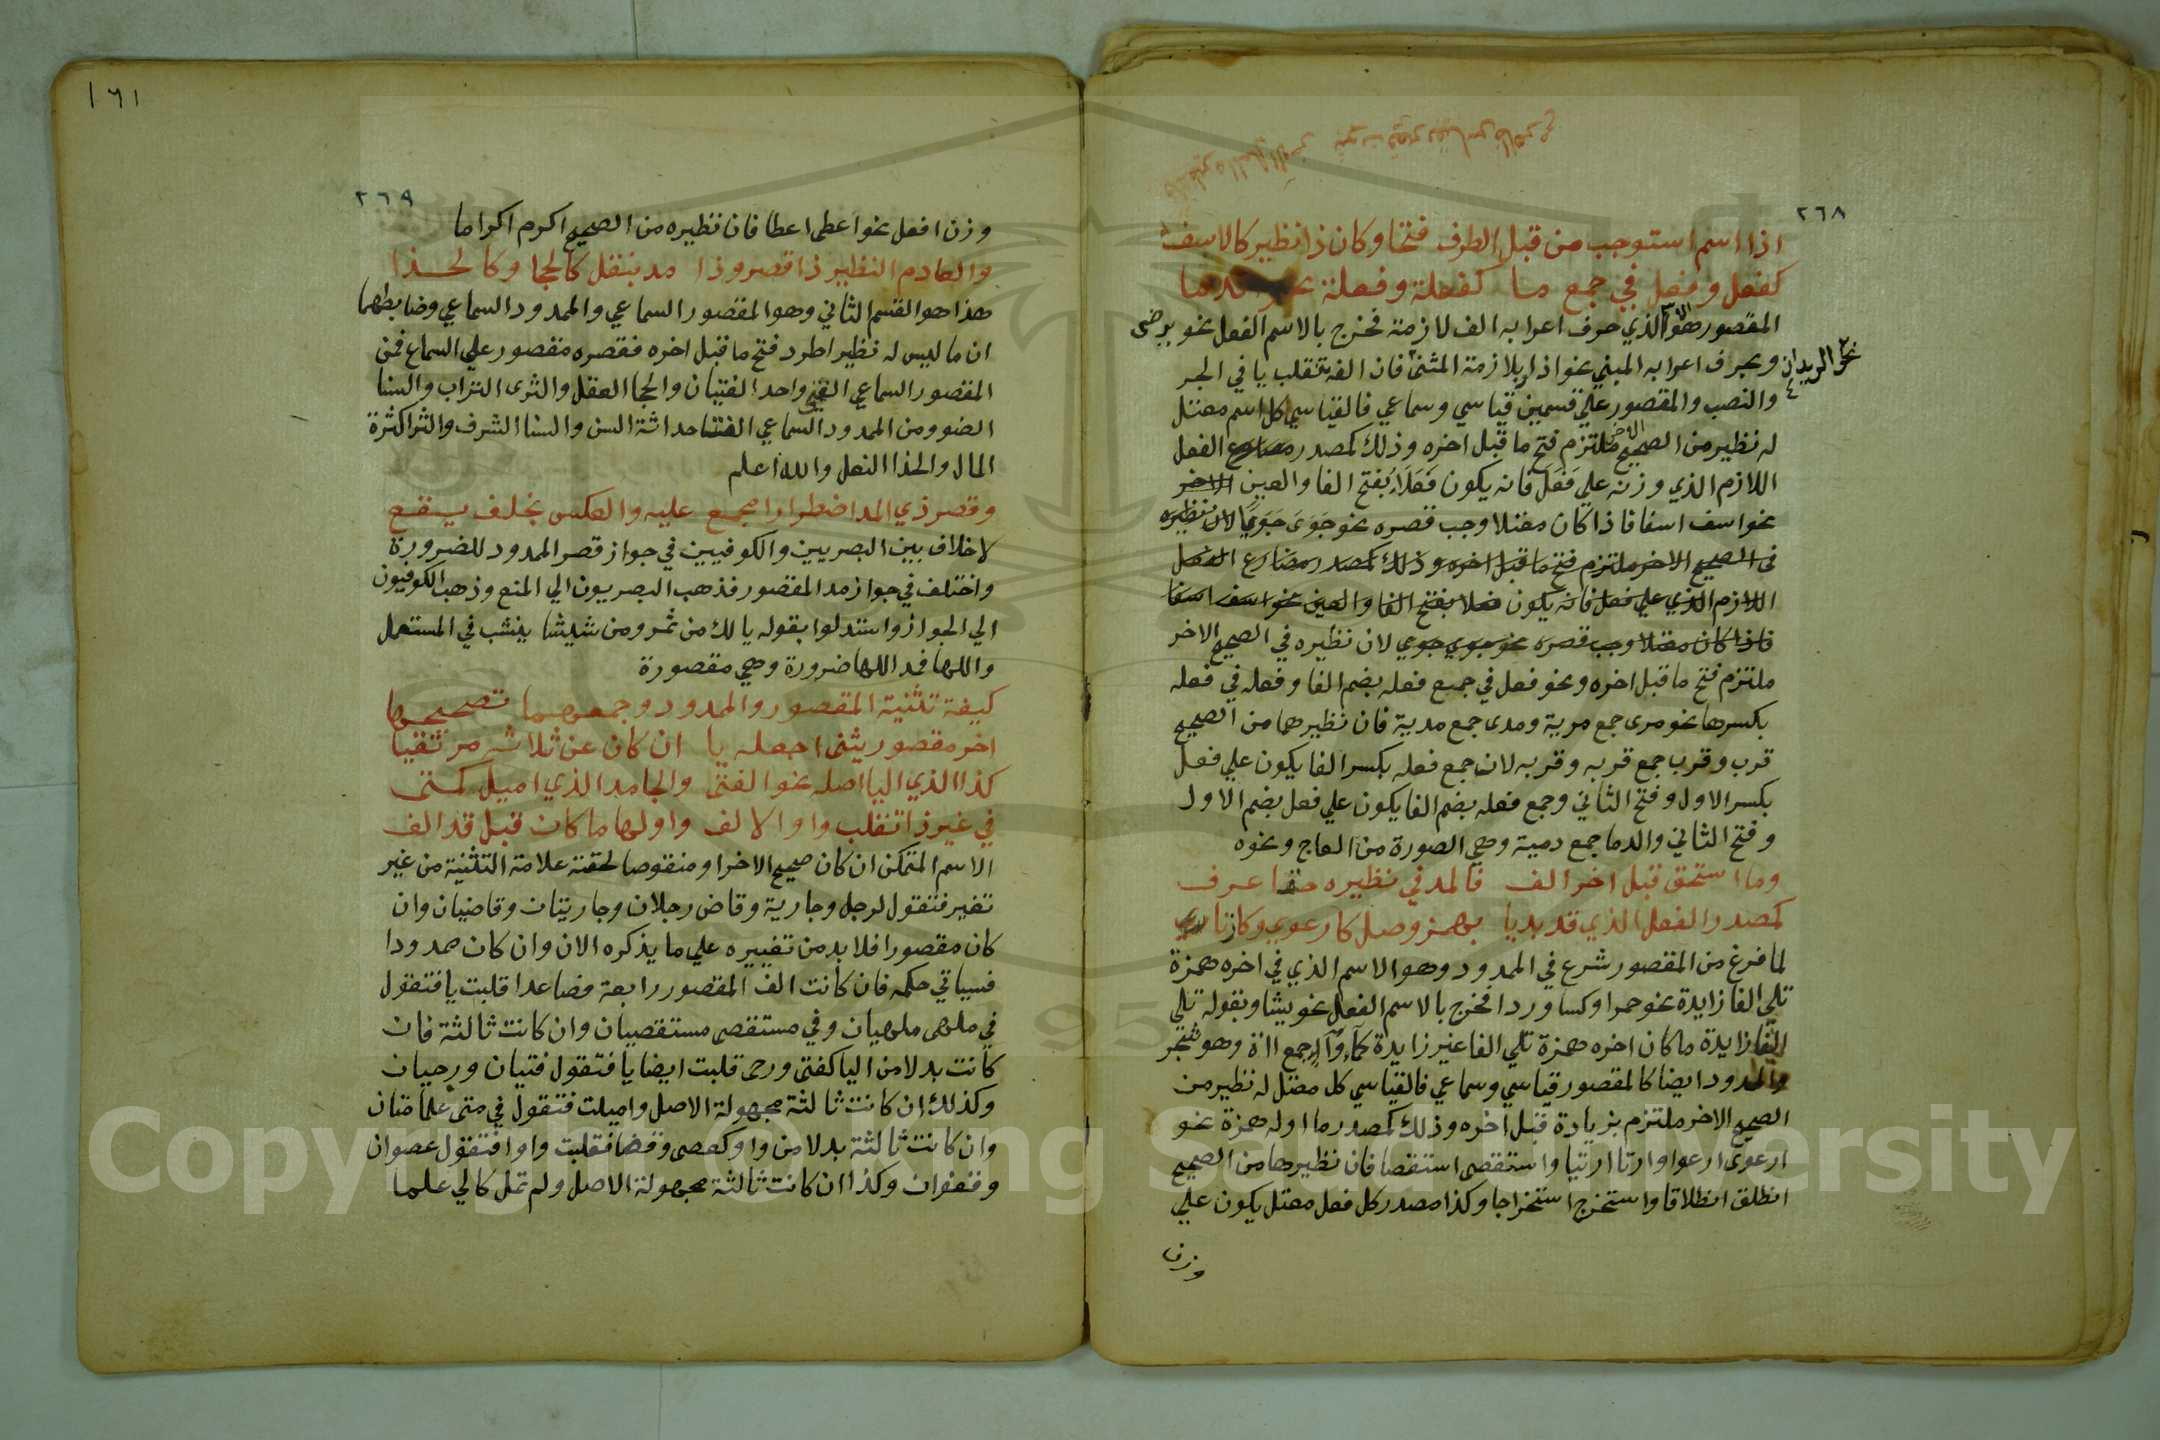 ٢٦٨
اذا اسم استوجب من قبل الطرف فتحا وكان ذا نظير كالاسف
كفعل وفعل في جمع ما كفعلة وفعلة نحو الدما
المقصور هو الاسم الذي حرف اعرابه الف لازمة فخرج بالاسم الفعل نحو يرضى
وبحرف اعرابه المبني نحو اذا وبلازمة المثنى فان الفه تنقلب يا في الجر
نحو الزيدان
والنصب والمقصور علي قسمين قياسي وسماعي فالقياسي كل اسم معتل
له نظير من الصحيح الاخر ملتزم فتح ما قبل اخره وذلك كمصدر مضارع الفعل
اللازم الذي وزنه علي فَعَلَ فانه يكون فَعَلَا بفتح الفا والعين الاخر
نحو اسف اسفا فاذا كان معتلا وجب قصره نحو جَوَىَ جَوًي لان نظيره
في الصحيح الاخر ملتزم فتح ما قبل اخره وذلك كمصدر مضارع الفعل
اللازم الذي علي فعل فانه يكون فعلا بفتح الفا والعين نحو اسف اسفا
فاذا كان معتلا وجب قصره نحو جوي جوي لان نظيره في الصحيح الاخر
ملتزم فتح ما قبل اخره ونحو فعل في جمع فعله بضم الفا وفعله في فعله
بكسرها نحو مرى جمع مرية ومدى جمع مدية فان نظيرهما من الصحيح
قرب وقرب جمع قربه وقربه لان جمع فعله بكسر الفا يكون علي فعل
بكسر الاول وفتح الثاني وجمع فعله بضم الفا يكون علي فعل بضم الاول
وفتح الثاني والدما جمع دمية وهي الصورة من العاج ونحوه
وما استحق قبل اخر الف فالمد في نظيره حتما عرف
كمصدر الفعل الذي قد بديا بهمز وصل كارعوي وكارتاي
لما فرغ من المقصور شرع في الممدود وهو الاسم الذي في اخره همزة
تلي الفا زايدة نحو حمرا وكسا وردا فخرج بالاسم الفعل نحو يشا وبقوله تلي
الفا زايدة ما كان اخره همزة تلي الفا غير زايدة كماء وآء جمع ااة وهو شجر
والممدود ايضا كالمقصور قياسي وسماعي فالقياسي كل معتل له نظير من
الصحيح الاخر ملتزم بزيادة قبل اخره وذلك كمصدر ما اوله همزة نحو
ارعوى ارعوا وارتا ارتيا واستقصى استقصا فان نظيرها من الصحيح
انطلق انطلاقا واستخرج استخراجا وكذا مصدر كل فعل معتل يكون علي
وزن
١٦١
٢٦٩
وزن افعل نحو اعطى اعطا فان نظيره من الصحيح اكرم اكراما
والعادم النظير ذا قصر وذا مد بنقل كالحجا وكالحذا
هذا هو القسم الثاني وهو المقصور السماعي والممدود السماعي وضابطهما
ان ما ليس له نظير اطرد فتح ما قبل اخره فقصره مقصور علي السماع فمن
المقصور السماعي الفتى واحد الفتيان والحجا العقل والثرى التراب والسنا
الضوو ومن الممدود السماعي الفتا حداثة السن والسنا الشرف والثرا كثرة
المال والحذا النعل والله اعلم
وقصر ذي المد اضطرارا مجمع عليه والعكس بخلف يقع
لا خلاف بين البصريين والكوفيين في جواز قصر الممدود للضرورة
واختلف في جواز مد المقصور فذهب البصريون الي المنع وذهب الكوفيون
الي الجواز واستدلوا بقوله يا لك من تمر ومن شيشا ينشب في المستعمل
واللها فمد اللها ضرورة وهي مقصورة
كيفة تثنية المقصور والممدود وجمعهما تصحيحها
اخر مقصور يثنى اجعله يا ان كان عن ثلاثه مرتقيا
كذا الذي اليا اصله نحو الفتى والجامد الذي اميل كمتى
في غير ذا تقلب واوا الالف واولها ما كان قبل قد الف
الاسم المتمكن ان كان صحيح الاخر او منقوصا لحقته علامة التثنية من غير
تغير فتقول لرجل وجارية وقاض رجلان وجاريتان وقاضيان وان
كان مقصورا فلا بد من تغييره علي ما يذكره الان وان كان ممدودا
فسياتي حكمه فان كانت الف المقصور رابعة فصاعدا قلبت يا فتقول
في ملهى ملهيان وفي مستقصى مستقصيان وان كانت ثالثة فان
كانت بدلا من اليا كفتى ورحى قلبت ايضا يا فتقول فتيان ورحيان
وكذلك ان كانت ثالثة مجهولة الاصل واميلت فتقول في متى علما متيان
وان كانت ثالثة بدلا من واو كعصى وقفا فقلبت واوا فتقول عصوان
وقفوان وكذا ان كانت ثالثة مجهولة الاصل ولم تمل كالي علما
Copyright © King Saud University